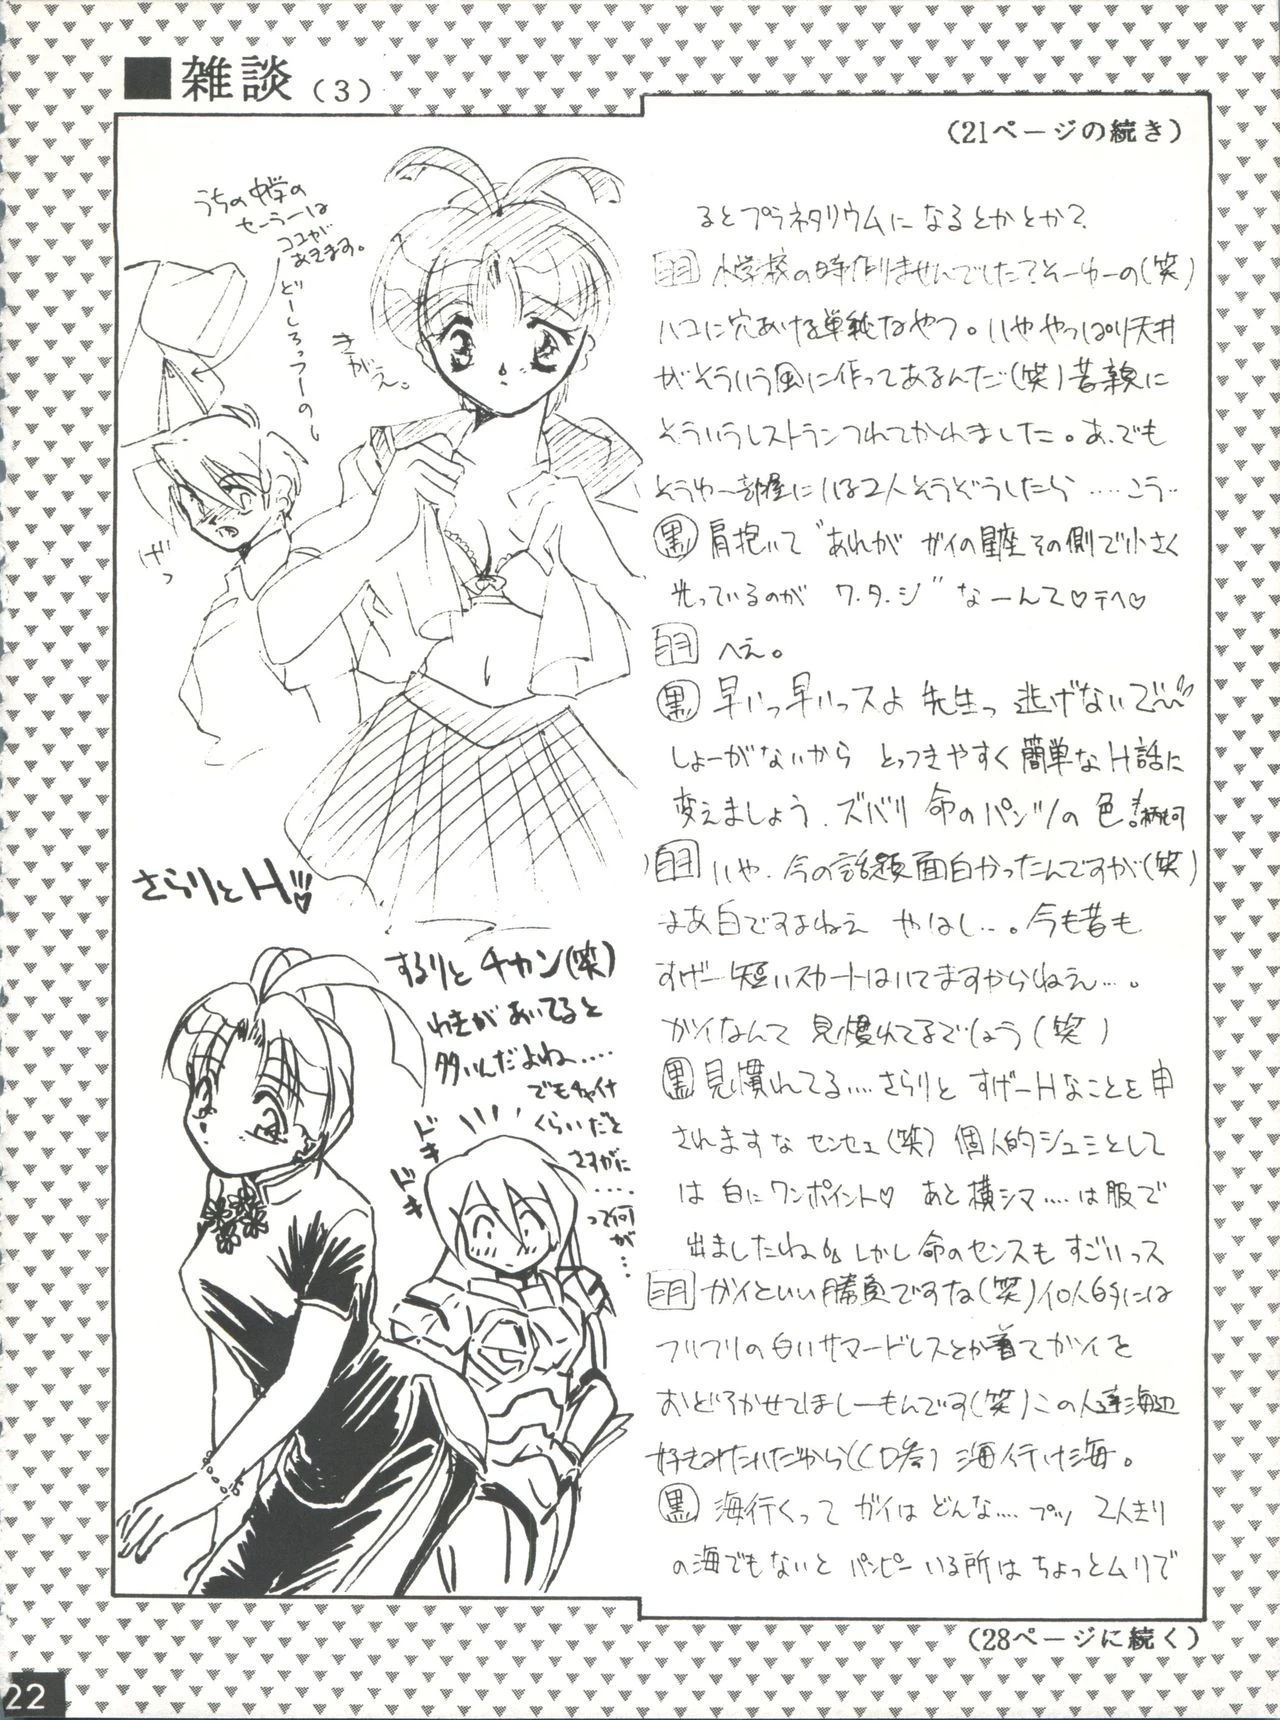 ■雑談（3）
（21ページの続き）
るとプラネタリウムになるとかとか？
羽 小学校の時作りませんでした？そーゆーの（笑）
ハコに穴あける単純なやつ。いややっぱり天井
がそういう風に作ってあるんだ（笑）昔親に
そういうレストランつれてかれました。あ、でも
そうゆー部屋にいる2人そうぞうしたら……こう‥
黒 肩抱いて“あれが ガイの星座その側で小さく
光っているのが ワ・タ・シ”なーんて♡テヘ♡
羽 へえ。
黒 早いっ早いっスよ 先生っ 逃げないで〜
しょーがないから とっつきやすく簡単なH話に
変えましょう。ズバリ 命のパンツの 色！
羽 いや、今の話題面白かったんですが（笑）
まあ白ですよねえ やはし…。今も昔も
すげー短いスカートはいてますからねえ…。
ガイなんて 見慣れてるでしょう（笑）
黒 見慣れてる‥‥さらりと すげーHなことを申
されますな センセェ（笑）個人的シュミとして
は 白にワンポイント♡ あと横シマ‥‥は服で
出ましたね。しかし命のセンスも すごいっス
羽 ガイといい勝負ですな（笑）個人的には
フリフリの白いサマードレスとか着てガイを
おどろかせてほしーもんです（笑）この人達海辺
好きみたいだから（CD参）海行け海。
黒 海行くって ガイは どんな…. プッ 2人きり
の海でもないと パンピー いる所は ちょっとムリで
（28ページに続く）
うちの中学の
セーラーは
ココが
あきます。
どーしろっつーの
きがえ。
げっ
さらりとH♡
するりと チカン（笑）
わきがあいてると
多いんだよね‥‥
でもチャイナ
くらいだと
さすがに
‥‥
って何
が…
ドキ
ドキ
22